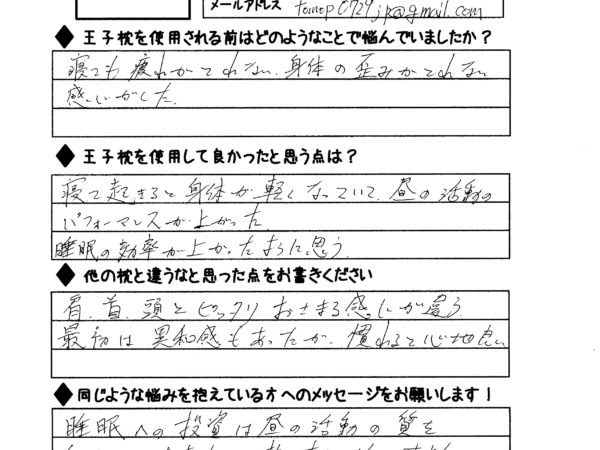 メールアドレス tomop0729jp@gmail.com
◆王子枕を使用される前はどのようなことで悩んでいましたか？
寝ても疲れがとれない、身体の歪みがとれない
感じがした。
◆王子枕を使用して良かったと思う点は？
寝て起きると身体が軽くなっていて、昼の活動の
パフォーマンスが上がった
睡眠の効率が上がったように思う
◆他の枕と違うなと思った点をお書きください
肩、首、頭とピッタリおさまる感じが違う
最初は異和感もあったが、慣れると心地良い
◆同じような悩みを抱えている方へのメッセージをお願いします！
睡眠への投資は昼の活動の質を